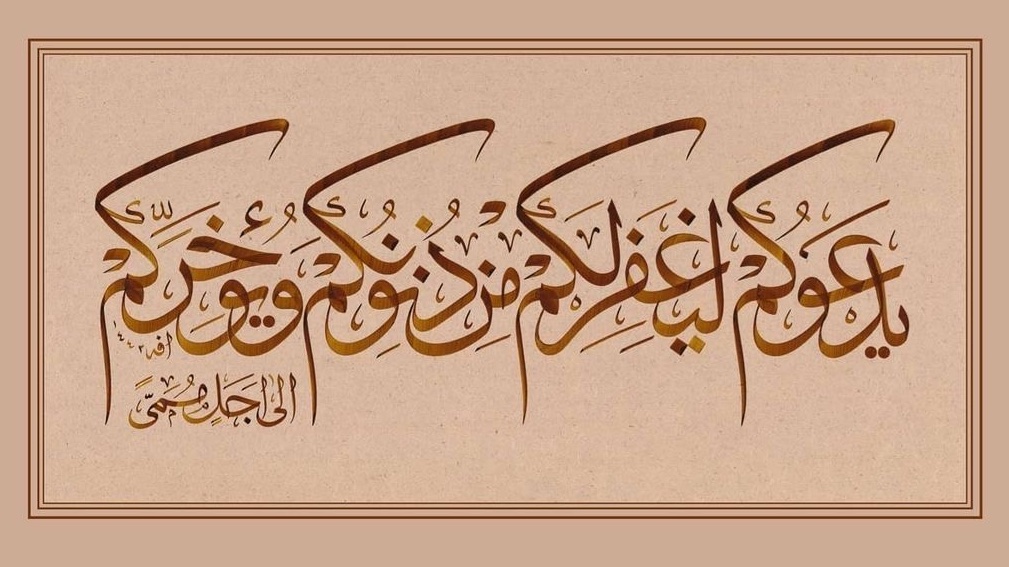 يَدْعُوكُمْ لِيَغْفِرَ لَكُمْ مِنْ ذُنُوبِكُمْ وَيُؤَخِّرَكُمْ
إلى أَجَلٍ مُسَمًّى